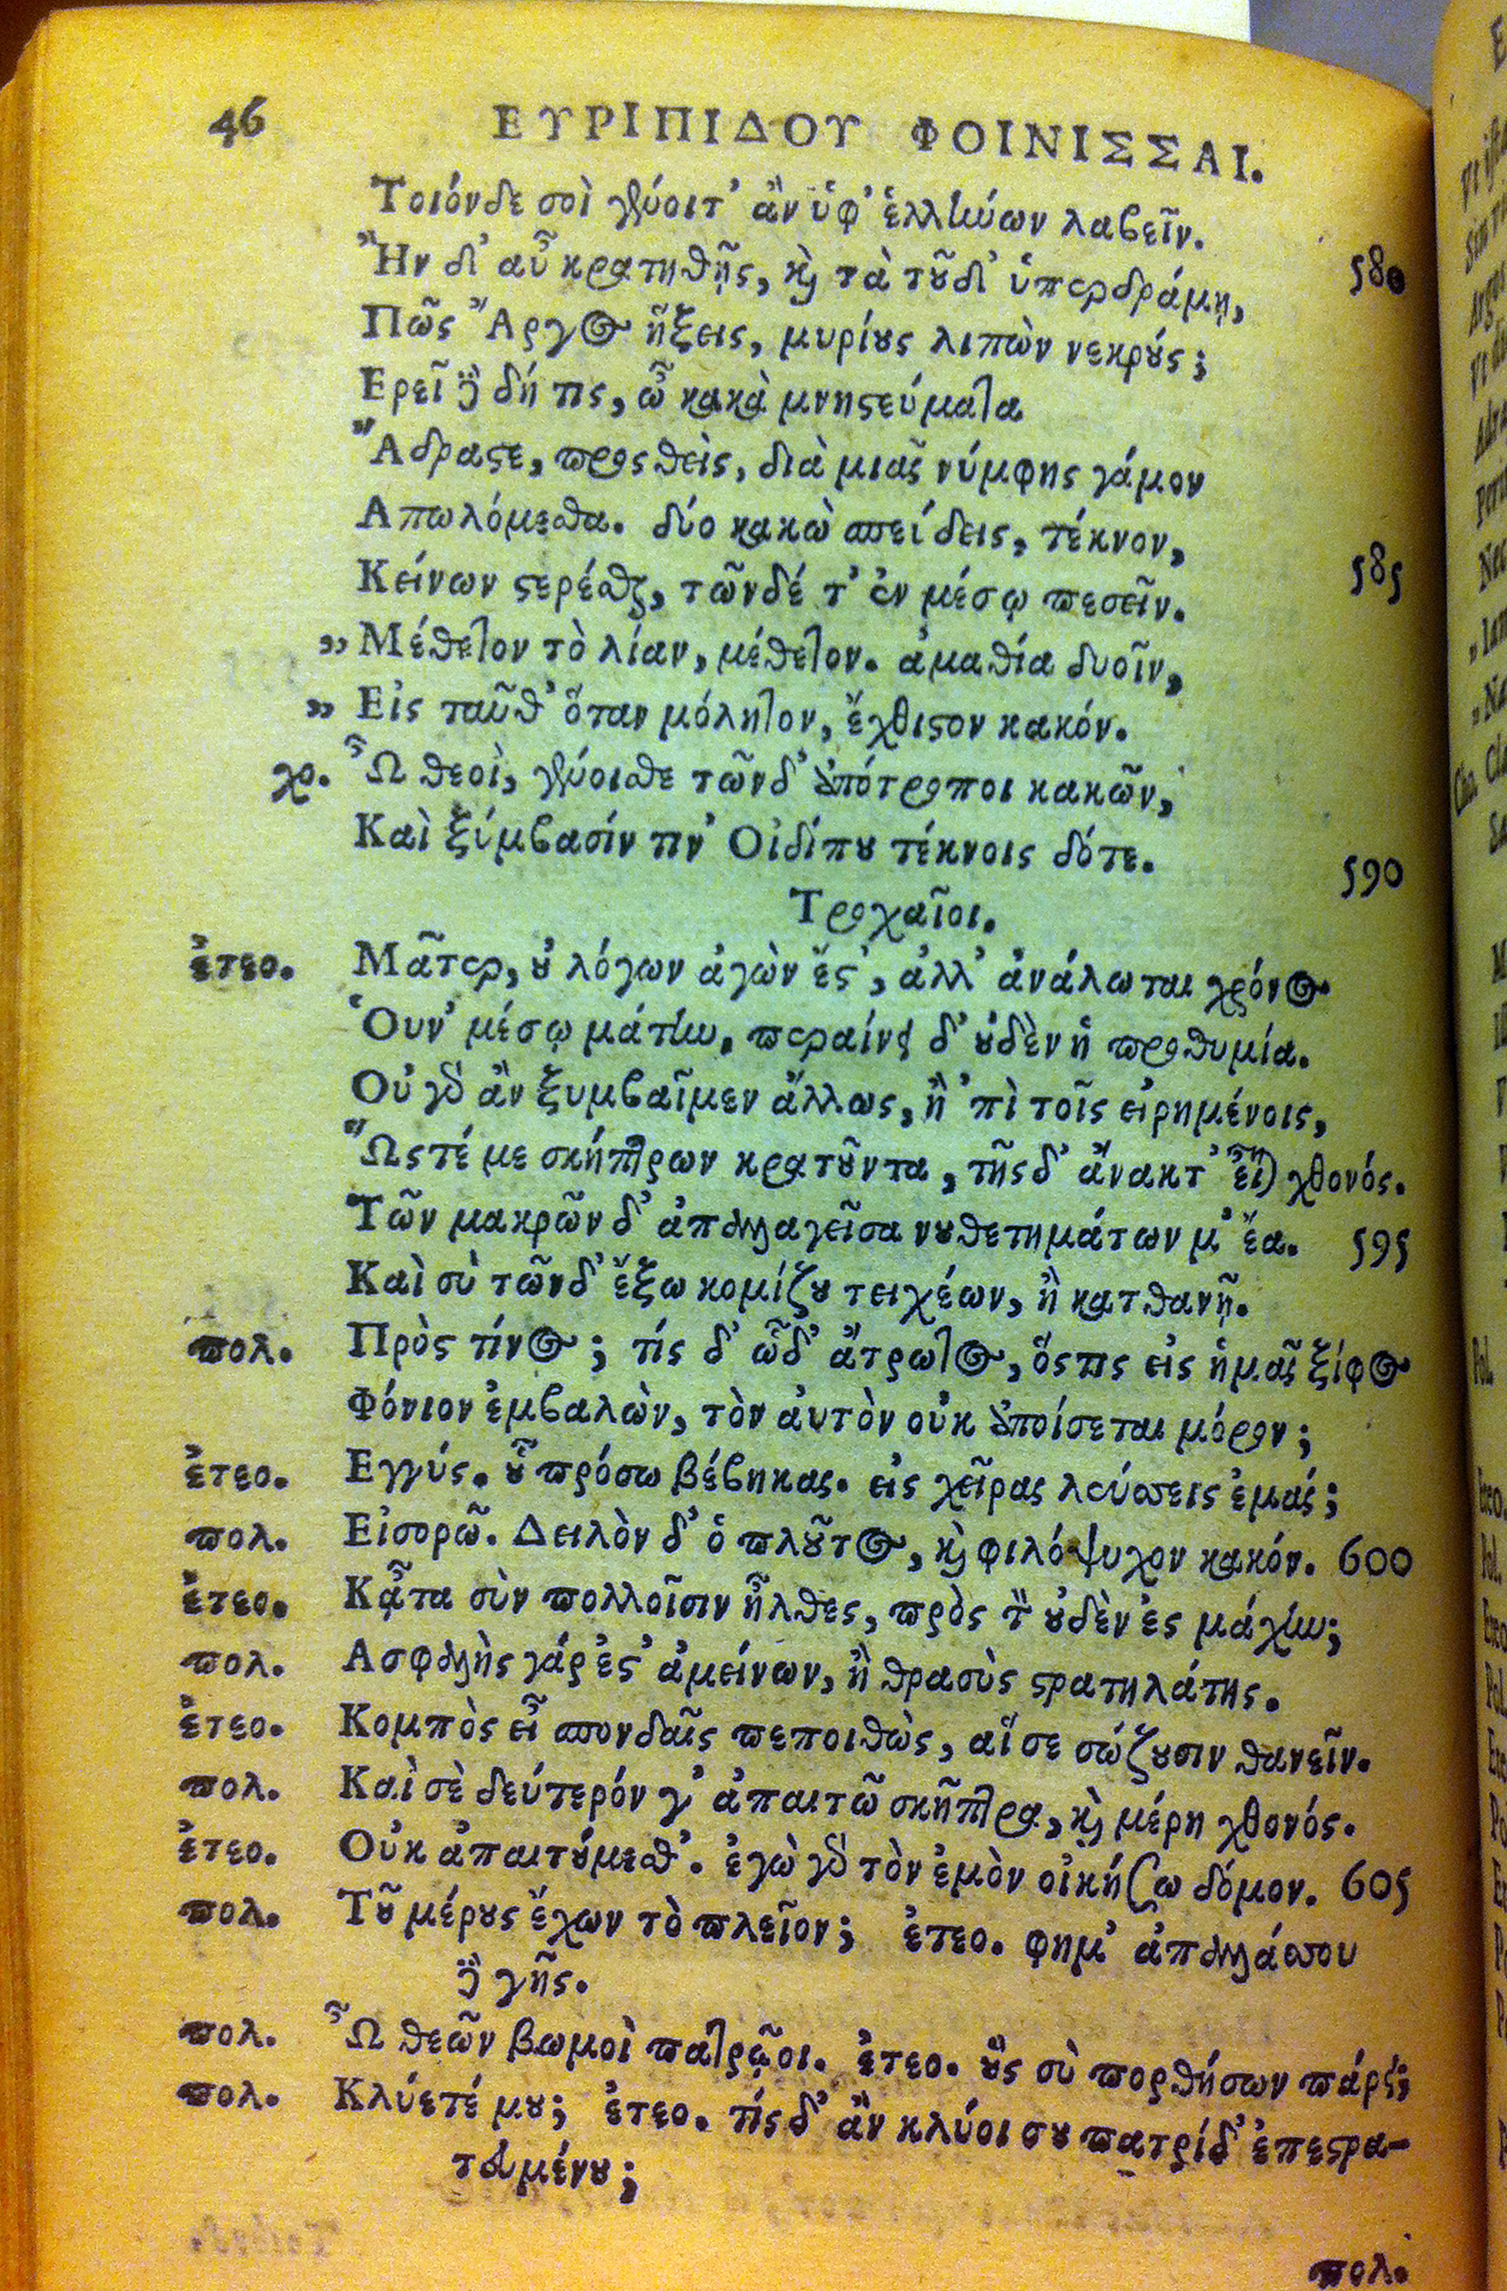 46 ΕΥΡΙΠΙΔΟΥ ΦΟΙΝΙΣΣΑΙ.
Τοιόνδε σοὶ γένοιτ' ἂν ὑφ' ἑλλήνων λαβεῖν.
Ἢν δ' αὖ κρατηθῇς, καὶ τὰ τοῦδ' ὑπερδράμῃ, 580
Πῶς Ἄργος ἥξεις, μυρίους λιπὼν νεκρούς;
Ερεῖ δὲ δή τις, ὦ κακὰ μνηστεύματα
Ἄδραστε, προσθεὶς, διὰ μιᾶς νύμφης γάμον
Απωλόμεσθα. δύο κακὼ σπεύδεις, τέκνον,
Κείνων στερέσθαι, τῶνδέ τ' ἐν μέσῳ πεσεῖν. 585
„ Μέθετον τὸ λίαν, μέθετον. ἀμαθία δυοῖν,
„ Εἰς ταῦθ' ὅταν μόλητον, ἔχθιστον κακόν.
χο. Ὦ θεοὶ, γένοισθε τῶνδ' ἀπότροποι κακῶν,
Καὶ ξύμβασίν τιν' Οἰδίπου τέκνοις δότε. 590
Τροχαῖοι.
ἐτεο. Μᾶτερ, οὐ λόγων ἀγὼν ἔστ', ἀλλ' ἀνάλωται χρόνος
Ὁυν' μέσῳ μάτην. περαίνει δ' οὐδὲν ἡ προθυμία.
Οὐ γὰρ ἂν ξυμβαῖμεν ἄλλως, ἢ 'πὶ τοῖς εἰρημένοις,
Ὥστέ με σκήπτρων κρατοῦντα, τῆσδ' ἄνακτ' εἶναι χθονός.
Τῶν μακρῶν δ' ἀπαλλαγεῖσα νουθετημάτων μ' ἔα. 595
Καὶ σὺ τῶνδ' ἔξω κομίζου τειχέων, ἢ κατθανῇ.
πολ. Πρὸς τίνος; τίς δ' ὧδ' ἄτρωτος, ὅστις εἰς ἡμᾶς ξίφος
Φόνιον ἐμβαλὼν, τὸν ἀυτὸν οὐκ ἀποίσεται μόρον;
ἐτεο. Εγγύς. οὐ πρόσω βέβηκας. εἰς χεῖρας λεύσσεις ἐμάς;
πολ. Εἰσορῶ. Δειλὸν δ' ὁ πλοῦτος, καὶ φιλόψυχον κακόν. 600
ἐτεο. Κᾆτα σὺν πολλοῖσιν ἦλθες, πρὸς τὸν οὐδὲν ἐς μάχην;
πολ. Ασφαλὴς γάρ ἐστ' ἀμείνων, ἢ θρασὺς στρατηλάτης.
ἐτεο. Κομπὸς εἶ σπονδαῖς πεποιθὼς, αἵ σε σώζουσιν θανεῖν.
πολ. Καὶ σὲ δεύτερόν γ' ἀπαιτῶ σκῆπτρα, καὶ μέρη χθονός.
ἐτεο. Οὐκ ἀπαιτούμεσθ'. ἐγὼ γὰρ τὸν ἐμὸν οἰκήσω δόμον. 605
πολ. Τοῦ μέρους ἔχων τὸ πλεῖον; ἐτεο. φημ' ἀπαλλάσσου
δὲ γῆς.
πολ. Ὦ θεῶν βωμοὶ πατρῷοι. ἐτεο. οὓς σὺ πορθήσων πάρει;
πολ. Κλύετέ μου; ἐτεο. τίς δ' ἂν κλύοι σου πατρίδ' ἐπεστρα-
τευμένου;
πολ.